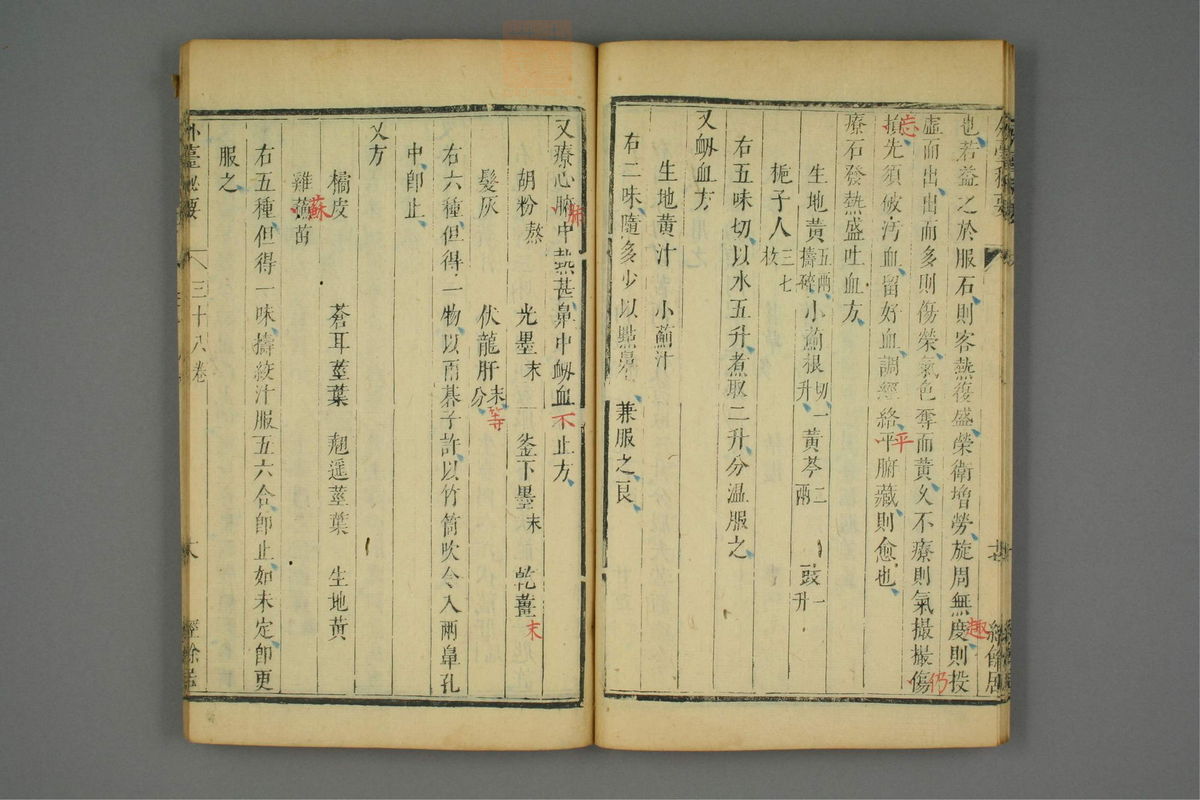 也若益之於服石則客熱復盛榮衛增勞旋周無度則投
趣
虛而出出而多則傷榮氣色奪而黃久不療則氣撮撮傷
仍
損先須破污血留好血調經絡平腑藏則愈也
忘
平
療石發熱盛吐血方
生地黃五兩擣碎 小薊根切一升 黃芩二兩 豉一升
梔子人三七枚
右五味切以水五升煮取二升分温服之
又衂血方
生地黃汁 小薊汁
右二味隨多少以點鼻 兼服之良
經餘居
又療心肺中熱甚鼻中衂血不止方
胡粉熬 光墨末 釜下墨末 乾薑末
髮灰 伏龍肝末等分
右六種但得一物以兩碁子許以竹筒吹令入兩鼻孔
中即止
又方
橘皮 蒼耳莖葉 翹遥莖葉 生地黃
雞蘇苗
蘇
右五種但得一味擣絞汁服五六合即止如未定即更
服之
外臺秘要 三十八卷